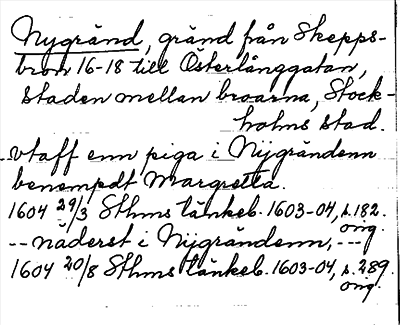 Nygränd, gränd från Skepps-
bron 16-18 till Österlånggatan,
staden mellan broarna, Stock-
holms stad.
--vtaff enn piga i Nijgrändenn
benempdt Margretta.
1604 29/3 Sthms tänkeb. 1603-04, s. 182.
orig.
--näderst i Nijgrändenn, ---
1604 20/8 Sthms tänkeb. 1603-04, s. 289.
orig.